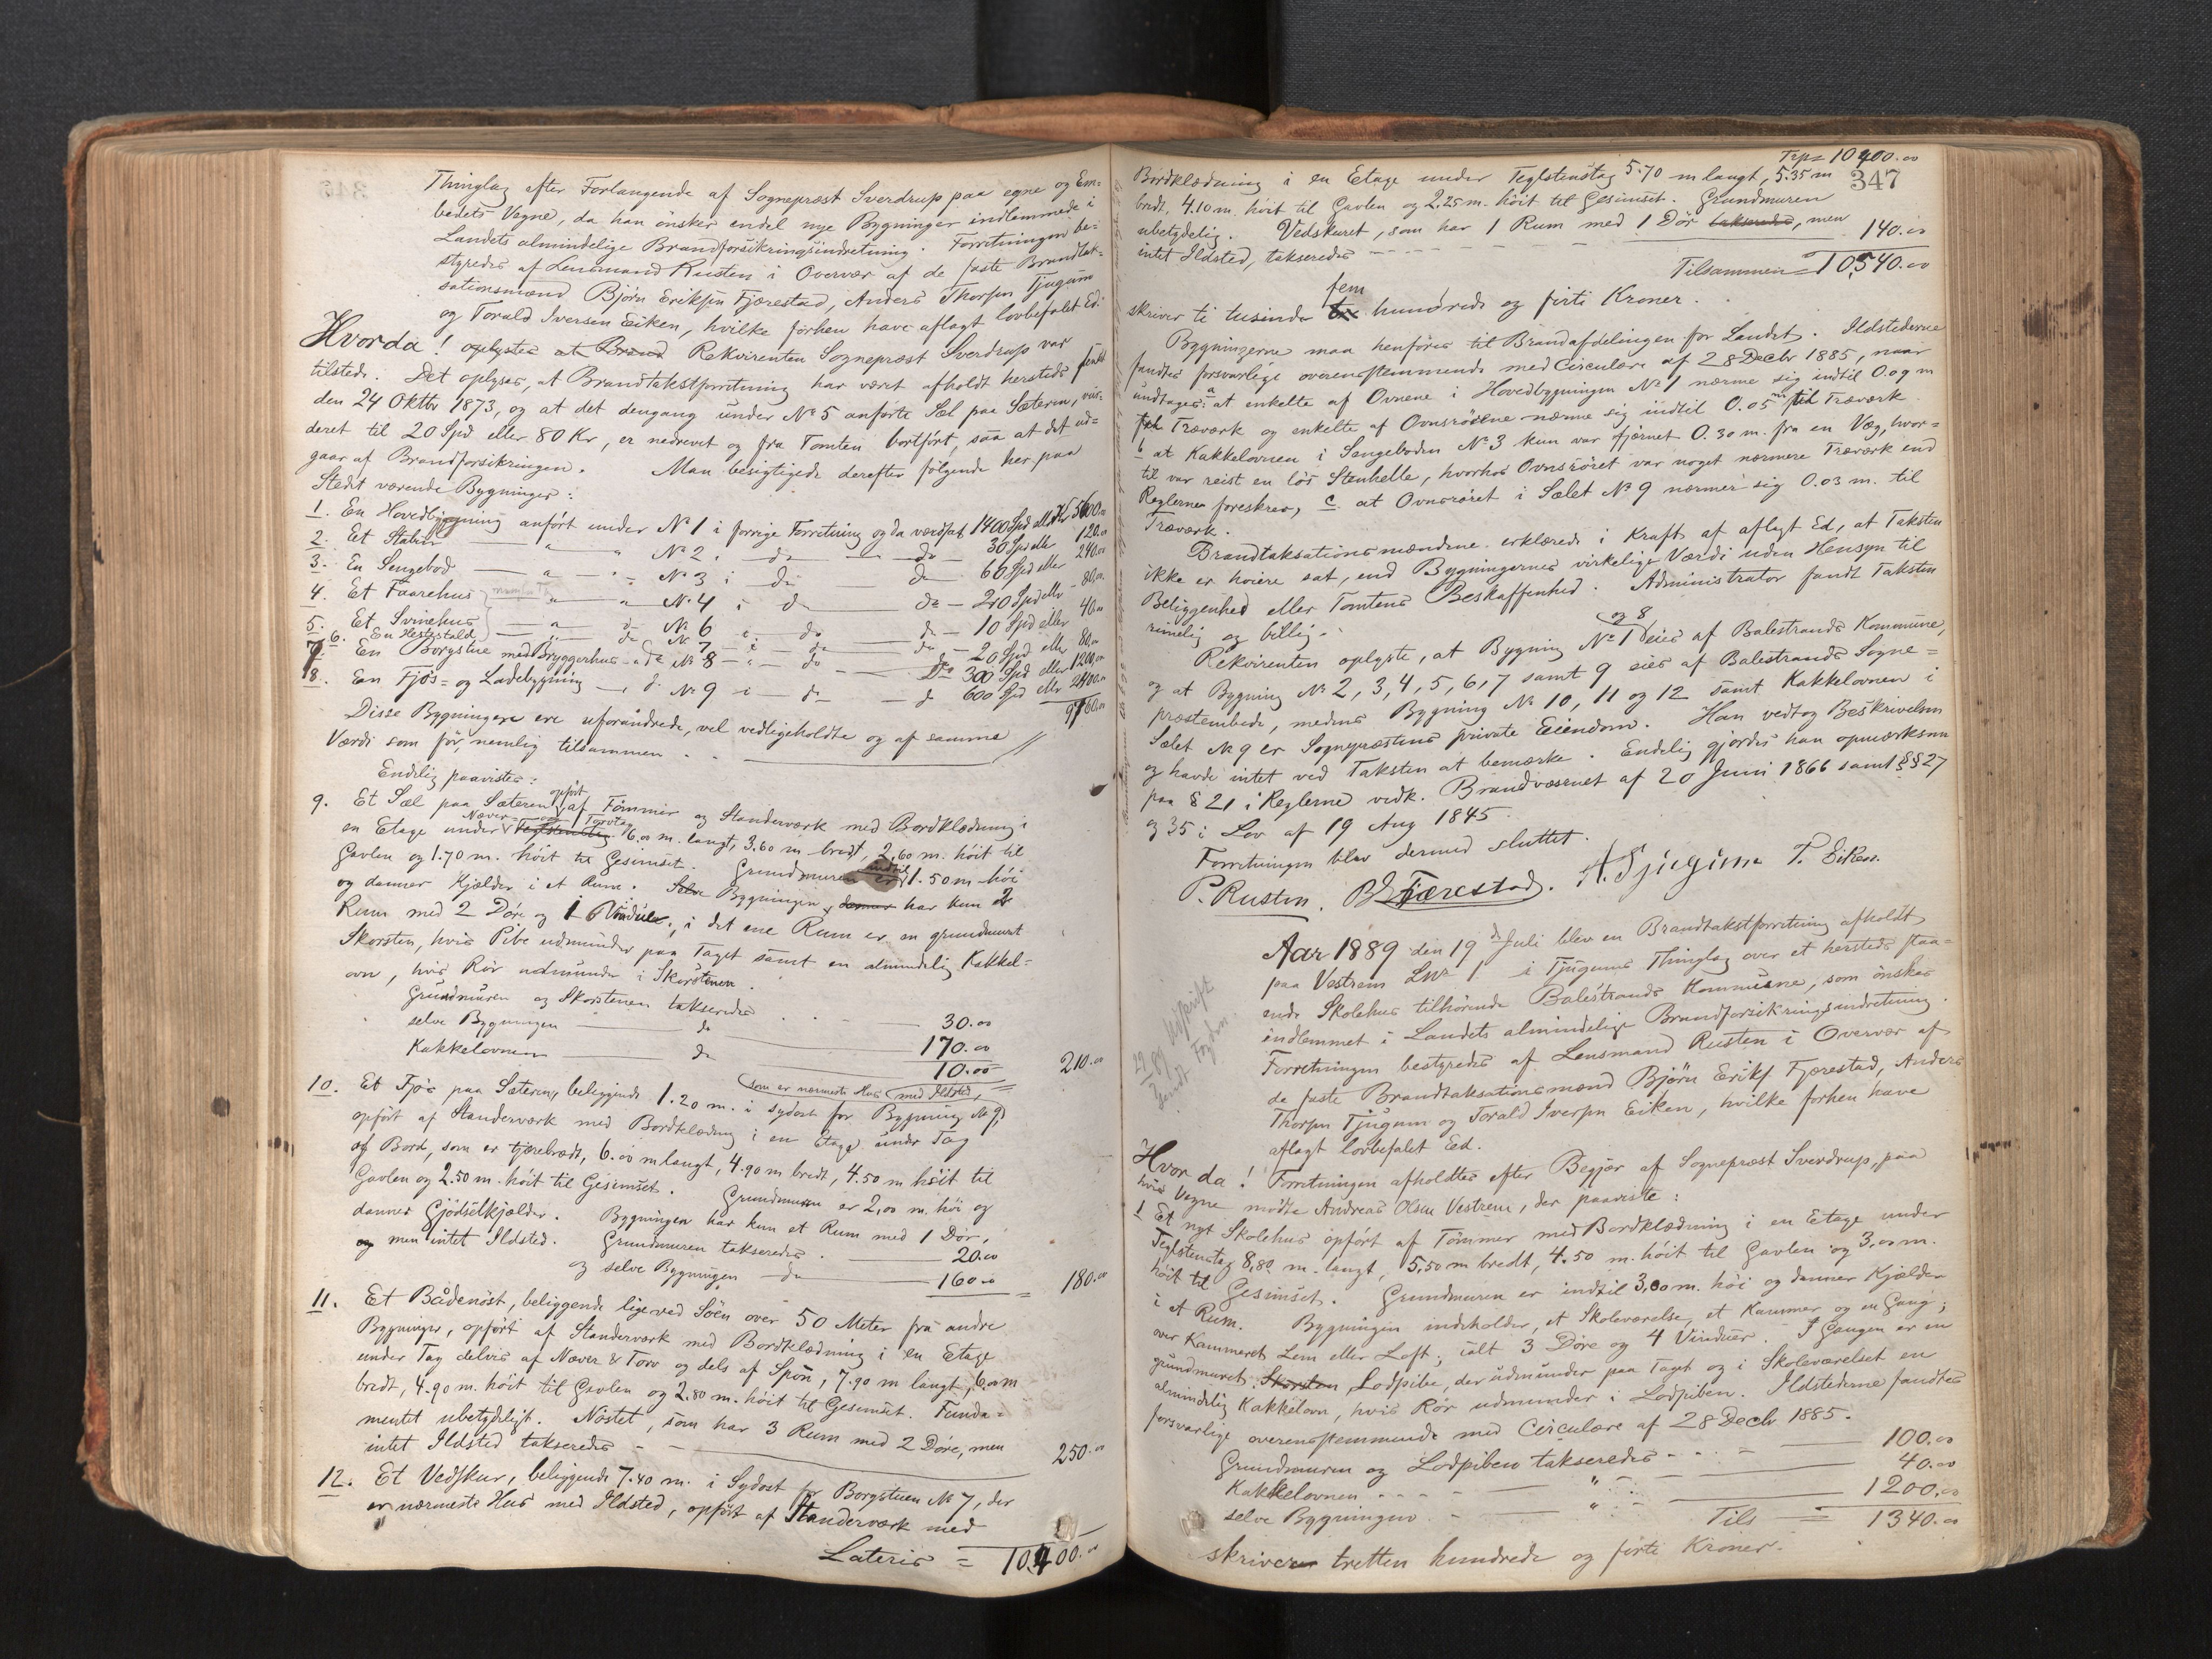 Thinglag efter Forlangende af Sognepræst Sverdrup paa egne og Em=
bedets Vegne, da han ønsker endel nye Bygninger indlemmede i
Landets almindelige Brandforsikringsindretning. Forretningen be=
styredes af Lensmand Rusten i Overvær af de faste Brandtak=
sationsmænd Bjørn Eriksen Fjærestad, Anders Thorsen Tjugum
og Torald Iversen Eiken, hvilke forhen have aflagt lovbefalet Ed.
Hvorda! oplystes at Brand Rekvirenten Sognepræst Sverdrup var
tilstede. Det oplyses, at Brandtakstforretning har været afholdt hersteds
den 24 Oktbr 1873, og at det dengang under No 5 anførte Sæl paa Sæteren, vur=
deret til 20 Spd eller 80 Kr, er nedrevet og fra Tomten bortført, saa at det ud=
gaar af Brandforsikringen. Man besigtigede derefter følgende her paa
Stedet værende Bygninger:
1. En Hovedbygning anført under No 1 i forrige Forretning og da værdsat 1400 Spd eller Kr 5600.00
2. Et Stabur — " — " No 2 i do — do — 30 Spd eller 120.00
3. En Sengebod — " — " No 3 i do — do — 60 Spd eller 240.00
4. Et Faarehus — " — " No 4 i do — do — 20 Spd eller 80.00
5. Et Svinehus — " — do No 6 i do — do — 10 Spd eller 40.00
6. En Hestestald — " — do No 7 i do — do — 20 Spd eller 80.00
7. En Borgstue med Bryggerhus " do No 8 " do — Do 300 Spd eller 1200.00
8. En Fjøs= og Ladebygning — " do No 9 i do — do 600 Spd eller 2400.00
Disse Bygninger ere uforandrede, vel vedligeholdte og af samme 9760.00
Værdi som før, nemlig tilsammen
Endelig paavistes:
9. Et Sæl paa Sæteren, opført af Tømmer og Standerværk med Bordklædning i
en Etage under Næver= og Torvtag Teglstenstag 6.00 m. langt, 3.60 m bredt, 2.60 m. høit til
Gavlen og 1.70 m. høit til Gesimset. Grundmuren er indtil 1.50 m høi
og danner Kjælder i et Rum. Selve Bygningen danner har kun 2
Rum med 2 Døre og 1 Vindue; i det ene Rum er en grundmuret
Skorsten, hvis Pibe udmunder paa Taget samt en almindelig Kakkel=
ovn, hvis Rør udmunder i Skorstenen.
Grundmuren og Skorstenen takseredes — 30.00
selve Bygningen — do — 170.00
Kakkelovnen — do — 10.00 210.00
10. Et Fjøs paa Sæteren, beliggende 1.20 m. i sydost for Bygning No 9, (som er nærmeste Hus med Ildsted,)
opført af Standerværk med Bordklædning i en Etage under Tag
af Bord, som er tjærebrædt, 6.00 m langt, 4.90 m bredt, 4.50 m høit til
Gavlen og 2.50 m. høit til Gesimset. Grundmuren er 2,00 m. høi og
danner Gjødselkjælder. Bygningen har kun et Rum med 1 Dør,
og men intet Ildsted. Grundmuren takseredes — 20.00
og selve Bygningen — do — 160.00 = 180.00
11. Et Bådenøst, beliggende lige ved Søen over 50 Meter fra andre
Bygninger, opført af Standerværk med Bordklædning i en Etage
under Tag delvis af Næver & Torv og dels af Spøn, 7.90 m langt, 6.00 m
bredt, 4.90 m. høit til Gavlen og 2.80 m. høit til Gesimset. Funda=
mentet ubetydeligt. Nøstet, som har 3 Rum med 2 Døre, men
intet Ildsted takseredes — 250.00
12. Et Vedskur, beliggende 7.40 m. i Sydost for Borgstuen No 7, der
er nærmeste Hus med Ildsted, opført af Standerværk med
Lateris = 10,400.00
Trp = 10400.00
347
Bordklædning i en Etage under Teglstenstag 5.70 m langt, 5.35 m
bredt, 4.10 m. høit til Gavlen og 2.25 m. høit til Gesimset. Grundmuren
ubetydelig. Vedskuret, som har 1 Rum med 1 Dør takseredes, men
intet Ildsted, takseredes — 140.00
Tilsammen = 10,540.00
skriver ti tusinde fem hundrede og firti Kroner.
Bygningerne maa henføres til Brandafdelingen for Landet. Ildstederne
fandtes forsvarlige overensstemmende med Circulære af 28 Decbr 1885, naar
undtages: a at enkelte af Ovnene i Hovedbygningen No 1 nærme sig indtil 0.09 m
til Træværk og enkelte af Ovnsrørene nærme sig indtil 0.05 m til Træværk
b at Kakkelovnen i Sengeboden No 3 kun var fjærnet 0.30 m. fra en Væg, hvor=
til var reist en løs Stenhelle, hvorhos Ovnsrøret var noget nærmere Træværk end
Reglerne foreskrev, c at Ovnsrøret i Sælet No 9 nærmer sig 0.03 m. til
Træværk.
Brandtaksationsmændene erklærede i Kraft af aflagt Ed, at Taksten
ikke er høiere sat, end Bygningernes virkelige Værdi uden Hensyn til
Beliggenhed eller Tomtens Beskaffenhed. Administrator fandt Taksten
rimelig og billig.
Rekvirenten oplyste, at Bygning No 1 og 8 eies af Balestrands Kommune,
og at Bygning No 2, 3, 4, 5, 6, 7 samt 9 eies af Balestrands Sogne=
præstembede, medens Bygning No 10, 11 og 12 samt Kakkelovnen i
Sælet No 9 er Sognepræstens private Eiendom. Han vedtog Beskrivelsen
og havde intet ved Taksten at bemærke. Endelig gjordes han opmærksom
paa § 21 i Reglerne vedk. Brandvæsenet af 20 Juni 1866 samt §§ 27
og 35 i Lov af 19 Aug 1845.
Forretningen blev dermed sluttet.
P. Rusten. B E Fjærestad. A. Tjugum T. Eiken.
Aar 1889 den 19de Juli blev en Brandtakstforretning afholdt
paa Vestrem LNr 1 i Tjugums Thinglag over et hersteds staa=
ende Skolehus tilhørende Balestrands Kommune, som ønskes
indlemmet i Landets almindelige Brandforsikringsindretning.
Forretningen bestyredes af Lensmand Rusten i Overvær af
de faste Brandtaksationsmænd Bjørn Eriks. Fjærestad, Anders
Thorsen Tjugum og Torald Iversen Eiken, hvilke forhen have
aflagt lovbefalet Ed.
89 Udskrift
sendt Fogden.
Hvor da! Forretningen afholdtes efter Begjær af Sognepræst Sverdrup, paa
hvis Vegne mødte Andreas Olsen Vestrem, der paaviste:
1 Et nyt Skolehus opført af Tømmer med Bordklædning i en Etage under
Teglstenstag 8,80 m. langt, 5.50 m bredt, 4.50 m. høit til Gavlen og 3,00 m.
høit til Gesimset. Grundmuren er indtil 3,00 m. høi og danner Kjælder
i et Rum. Bygningen indeholder, et Skoleværelse, et Kammer og en Gang;
over Kammeret Lem eller Loft; ialt 3 Døre og 4 Vinduer. I Gangen er en
grundmuret Skorsten Lodpibe, der udmunder paa Taget og i Skoleværelset en
almindelig Kakkelovn, hvis Rør udmunder i Lodpiben. Ildstederne fandtes
forsvarlige overensstemmende med Circulære af 28 Decbr 1885.
Grundmuren og Lodpiben takseredes — 100.00
Kakkelovnen — " — 40.00
selve Bygningen — " — 1200.00
Tils = 1340.00
skriver tretten hundrede og firti Kroner.